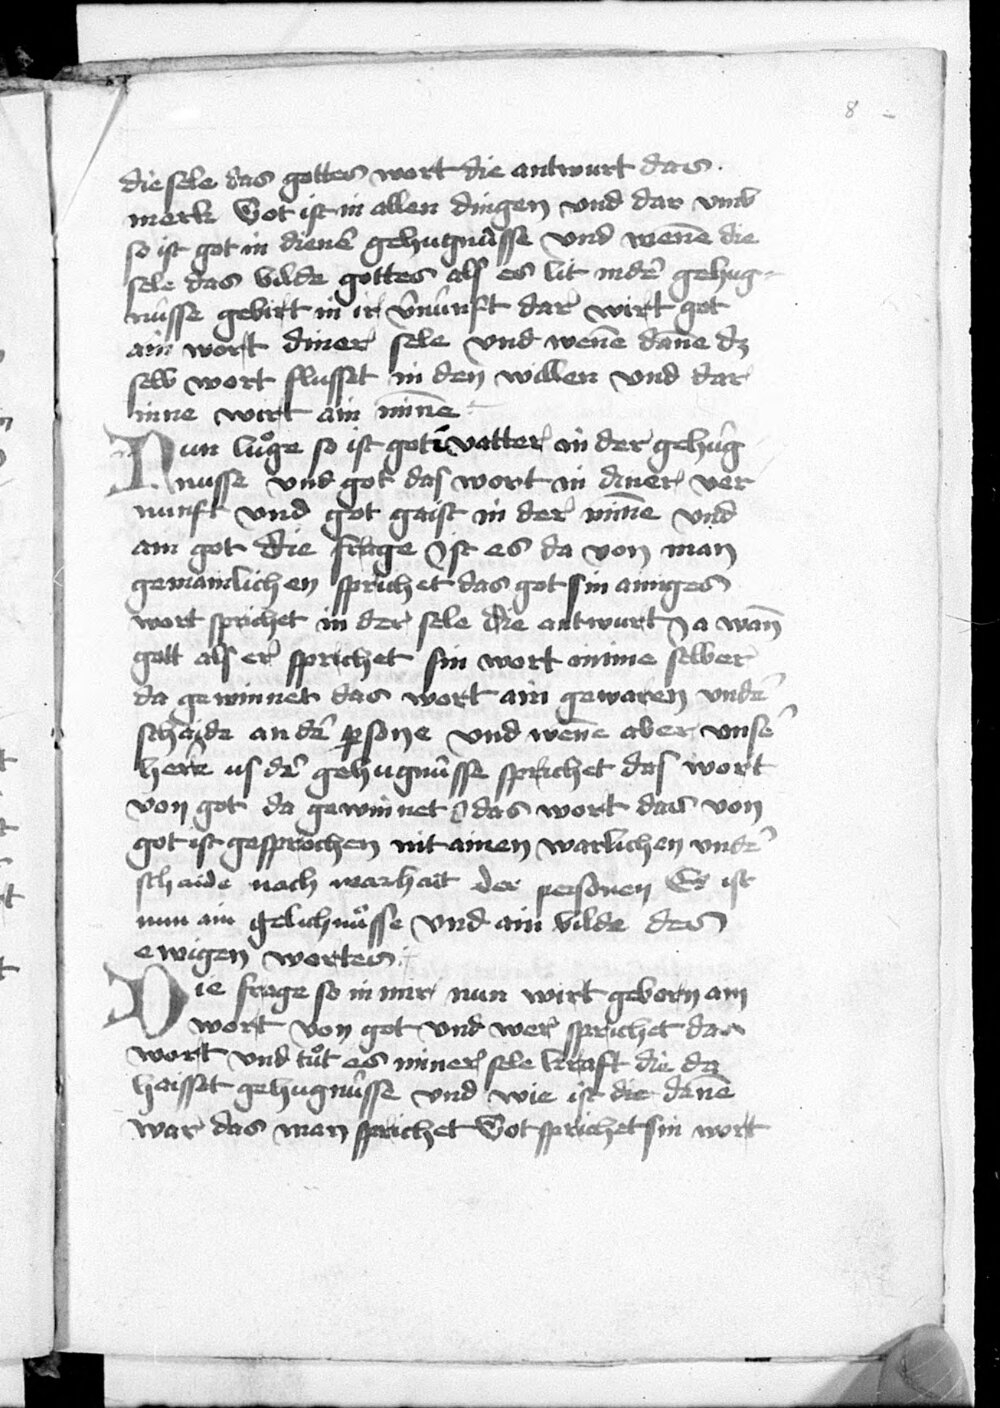 8
die sele das gottes wort die antwurt das
merk Got ist in allen dingen vnd dar vmb
so ist got in dienẽ gehugnu̍sse vnd wen̄e die
sele das bilde gottes als es lit in dẽ gehug-
nu̍sse gebirt in ir v̄nu̍nft dar wirt got
ain wort diner sele vnd wen̄e dan̄e dz
selb wort flusset in den willen vnd dar
inne wirt ain min̄e
Nun lůge so ist got vatter in der gehu̍g
nusse vnd got das wort in diner ver
nunft vnd got gaist in der min̄e vnd
ain got die frage ist es da von man
gemainlichen sprichet das got sin ainiges
wort sprichet in der sele die antwurt Ja wan̄
gott als er sprichet sin wort in ime selber
da gewinnet das wort ain gewaren vndẽ
schaide an dẽ ꝑsone vnd wen̄e aber vnsẽ
herre us dẽ gehugnu̍sse sprichet das wort
von got da gewinnet das wort das von
got ist gesprochen nit ainen warlichen vndẽ
schaide nach warhait der personen Es ist
nun ain gelichnu̍sse vnd ain bilde des
ewigen wortes
Die frage so in mir nun wirt geborn ain
wort von got vnd wer sprichet das
wort vnd tůt es miner sele kraft die da
haisset gehugnu̍sse vnd wie ist die dan̄e
war das man sprichet Got sprichet sin wort